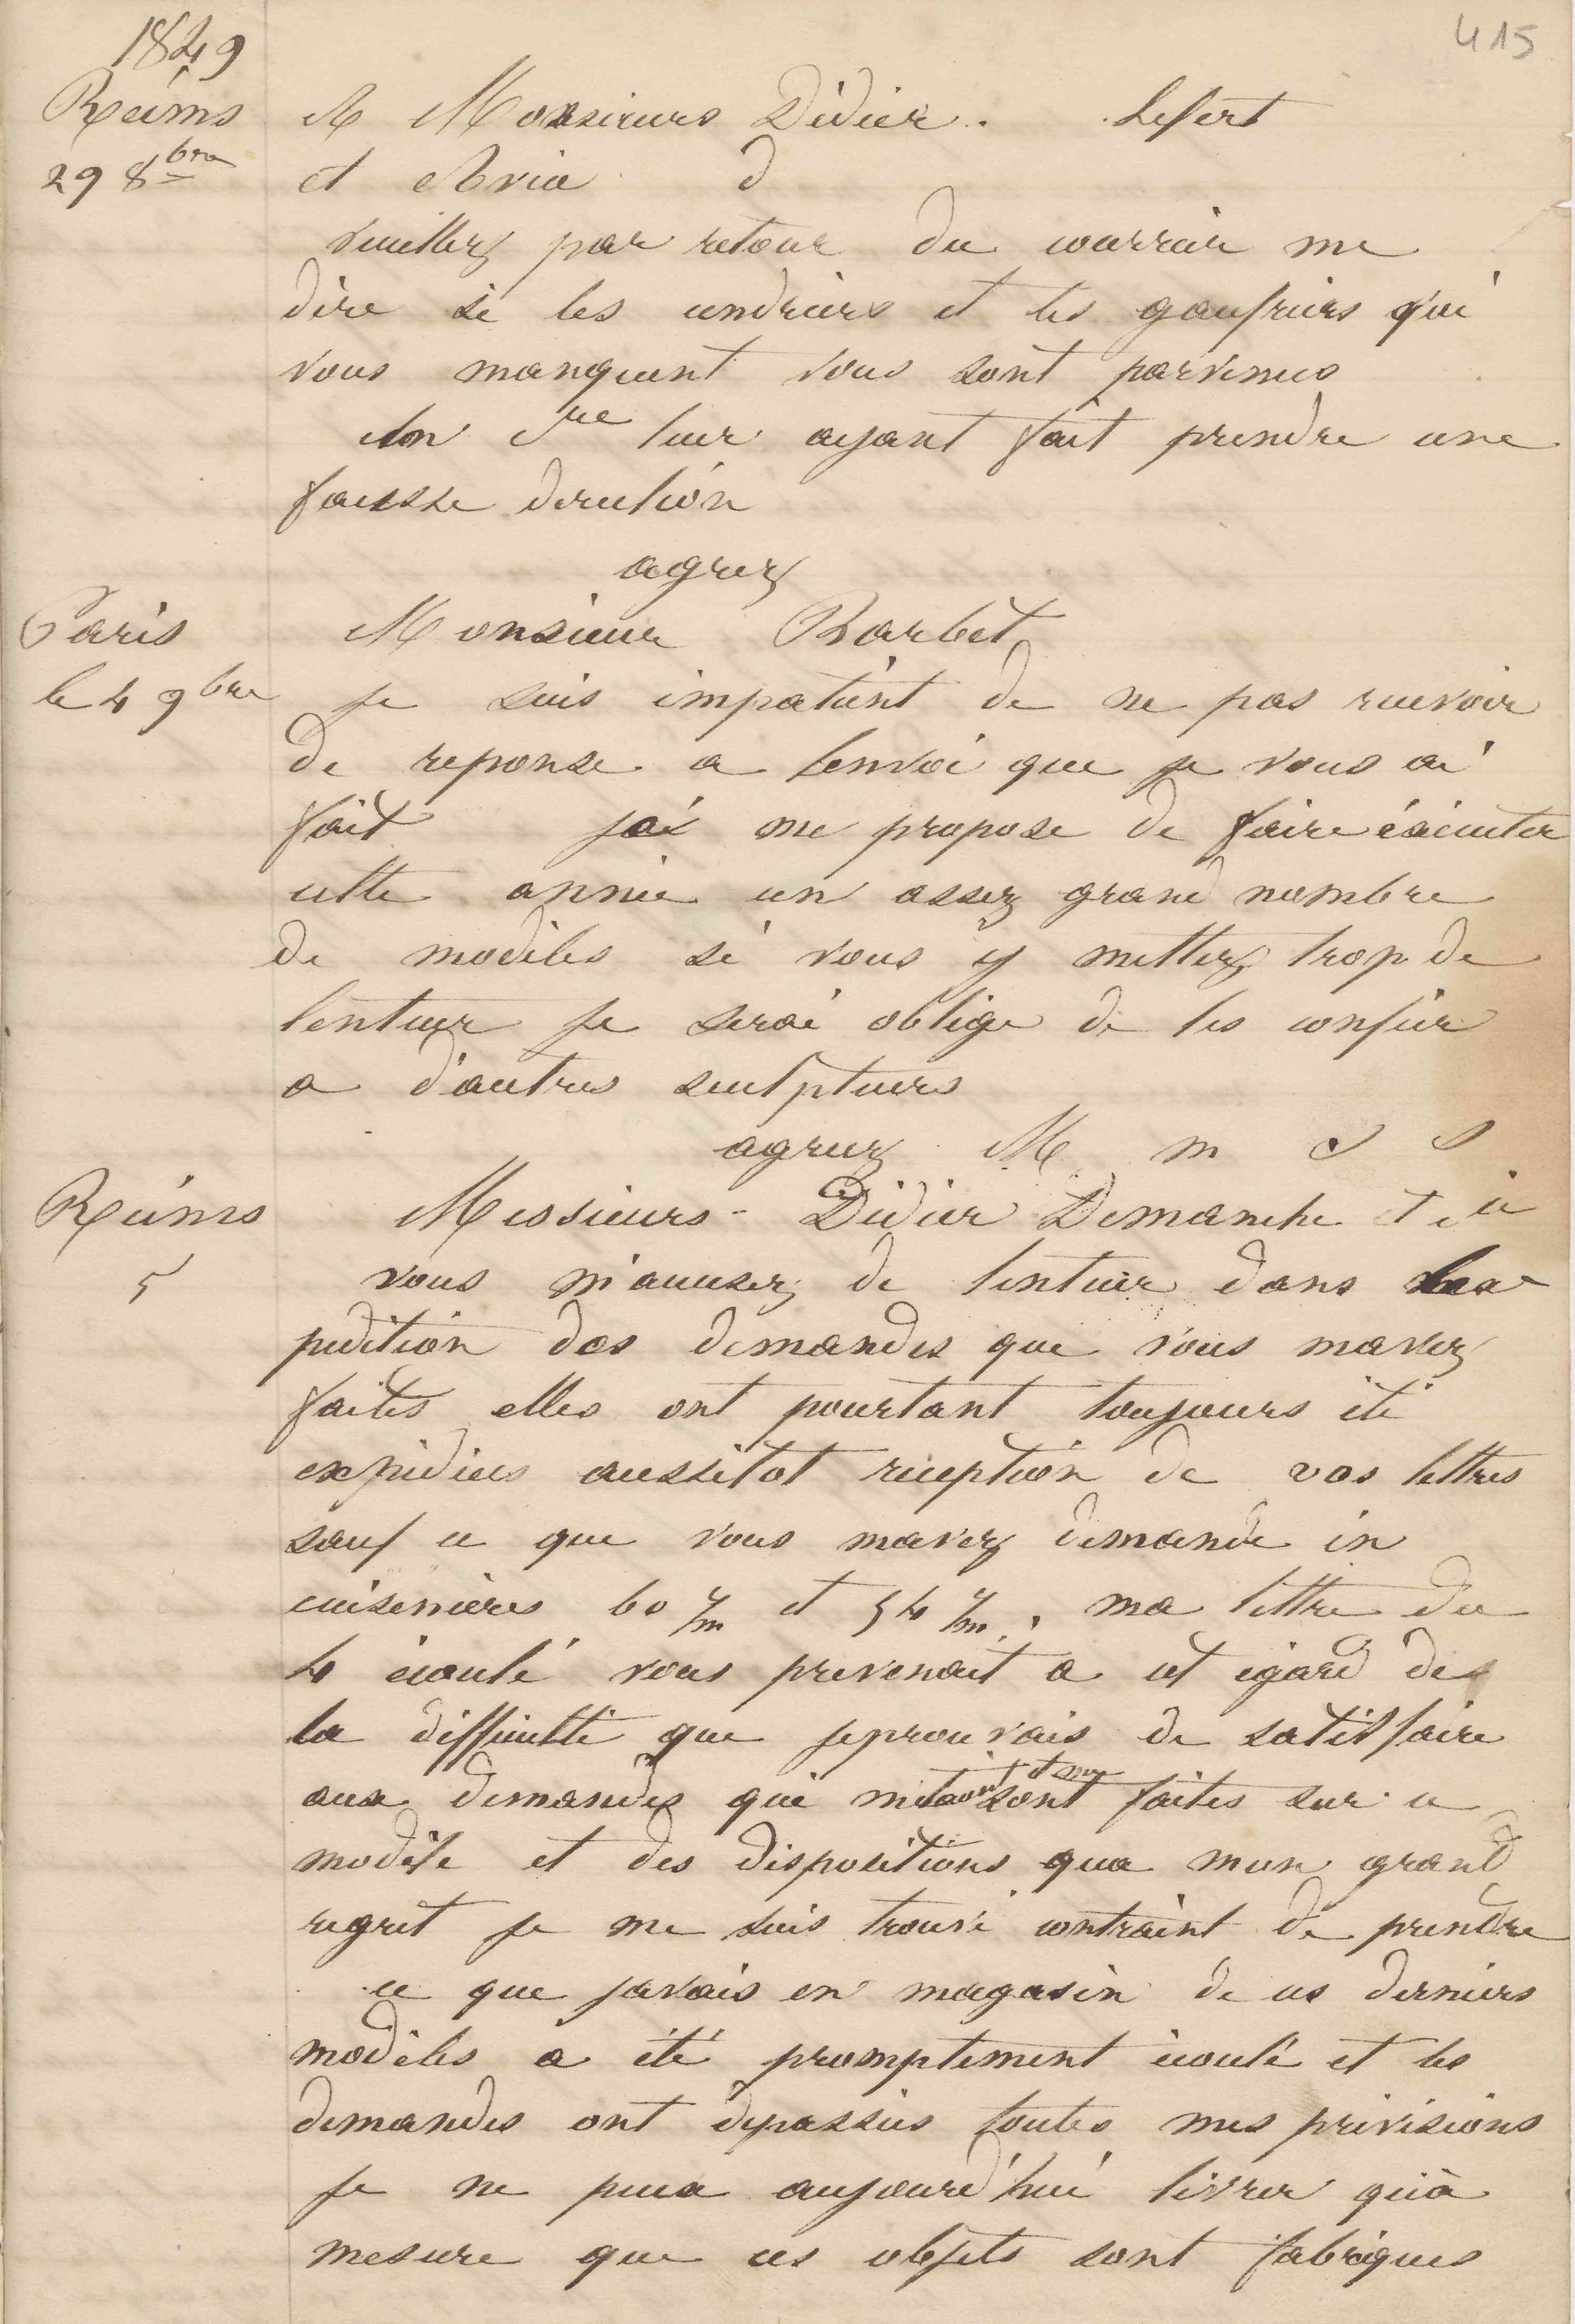 415
1849
Reims
29 8bre
A Monsieurs Didier. Lefert
et Avia d
veuillez par retour du courrier me
dire si les cendriers et les gaufriers qui
vous manquent vous sont parvenus
leur ayant fait prendre une
fausse direction
agreez
Paris
le 4 9bre
Monsieur Barbet
je suis impatient de ne pas recevoir
de reponse a lenvoi que je vous ai
fait jai me propose de faire éxécuter
cette année un assez grand nombre
de modèles si vous y mettez trop de
lenteur je serai oblige de les confier
a d'autres sculpteurs
agreez M m
Reims
5
Messieurs Didier Demanche et cie
vous m'accusez de lenteur dans lex
pedition des demandes que vous mavez
faites elles ont pourtant toujours été
expédiées aussitot réception de vos lettres
sauf ce que vous mavez demandé en
cuisinières 60 c/m et 54 c/m. ma lettre du
4 écoulé vous prevenait a cet égard de
la difficulté que jeprouvais de satisfaire
aux demandes qui sont faites sur ce
modèle et des dispositions qua mon grand
regret je me suis trouvé contraint de prendre
ce que javais en magasin de ces derniers
modèles a été promptement écoulé et les
demandes ont depassées toutes mes prévisions
je ne peux aujourd'hui livrer quà
mesure que ces objets sont fabriques